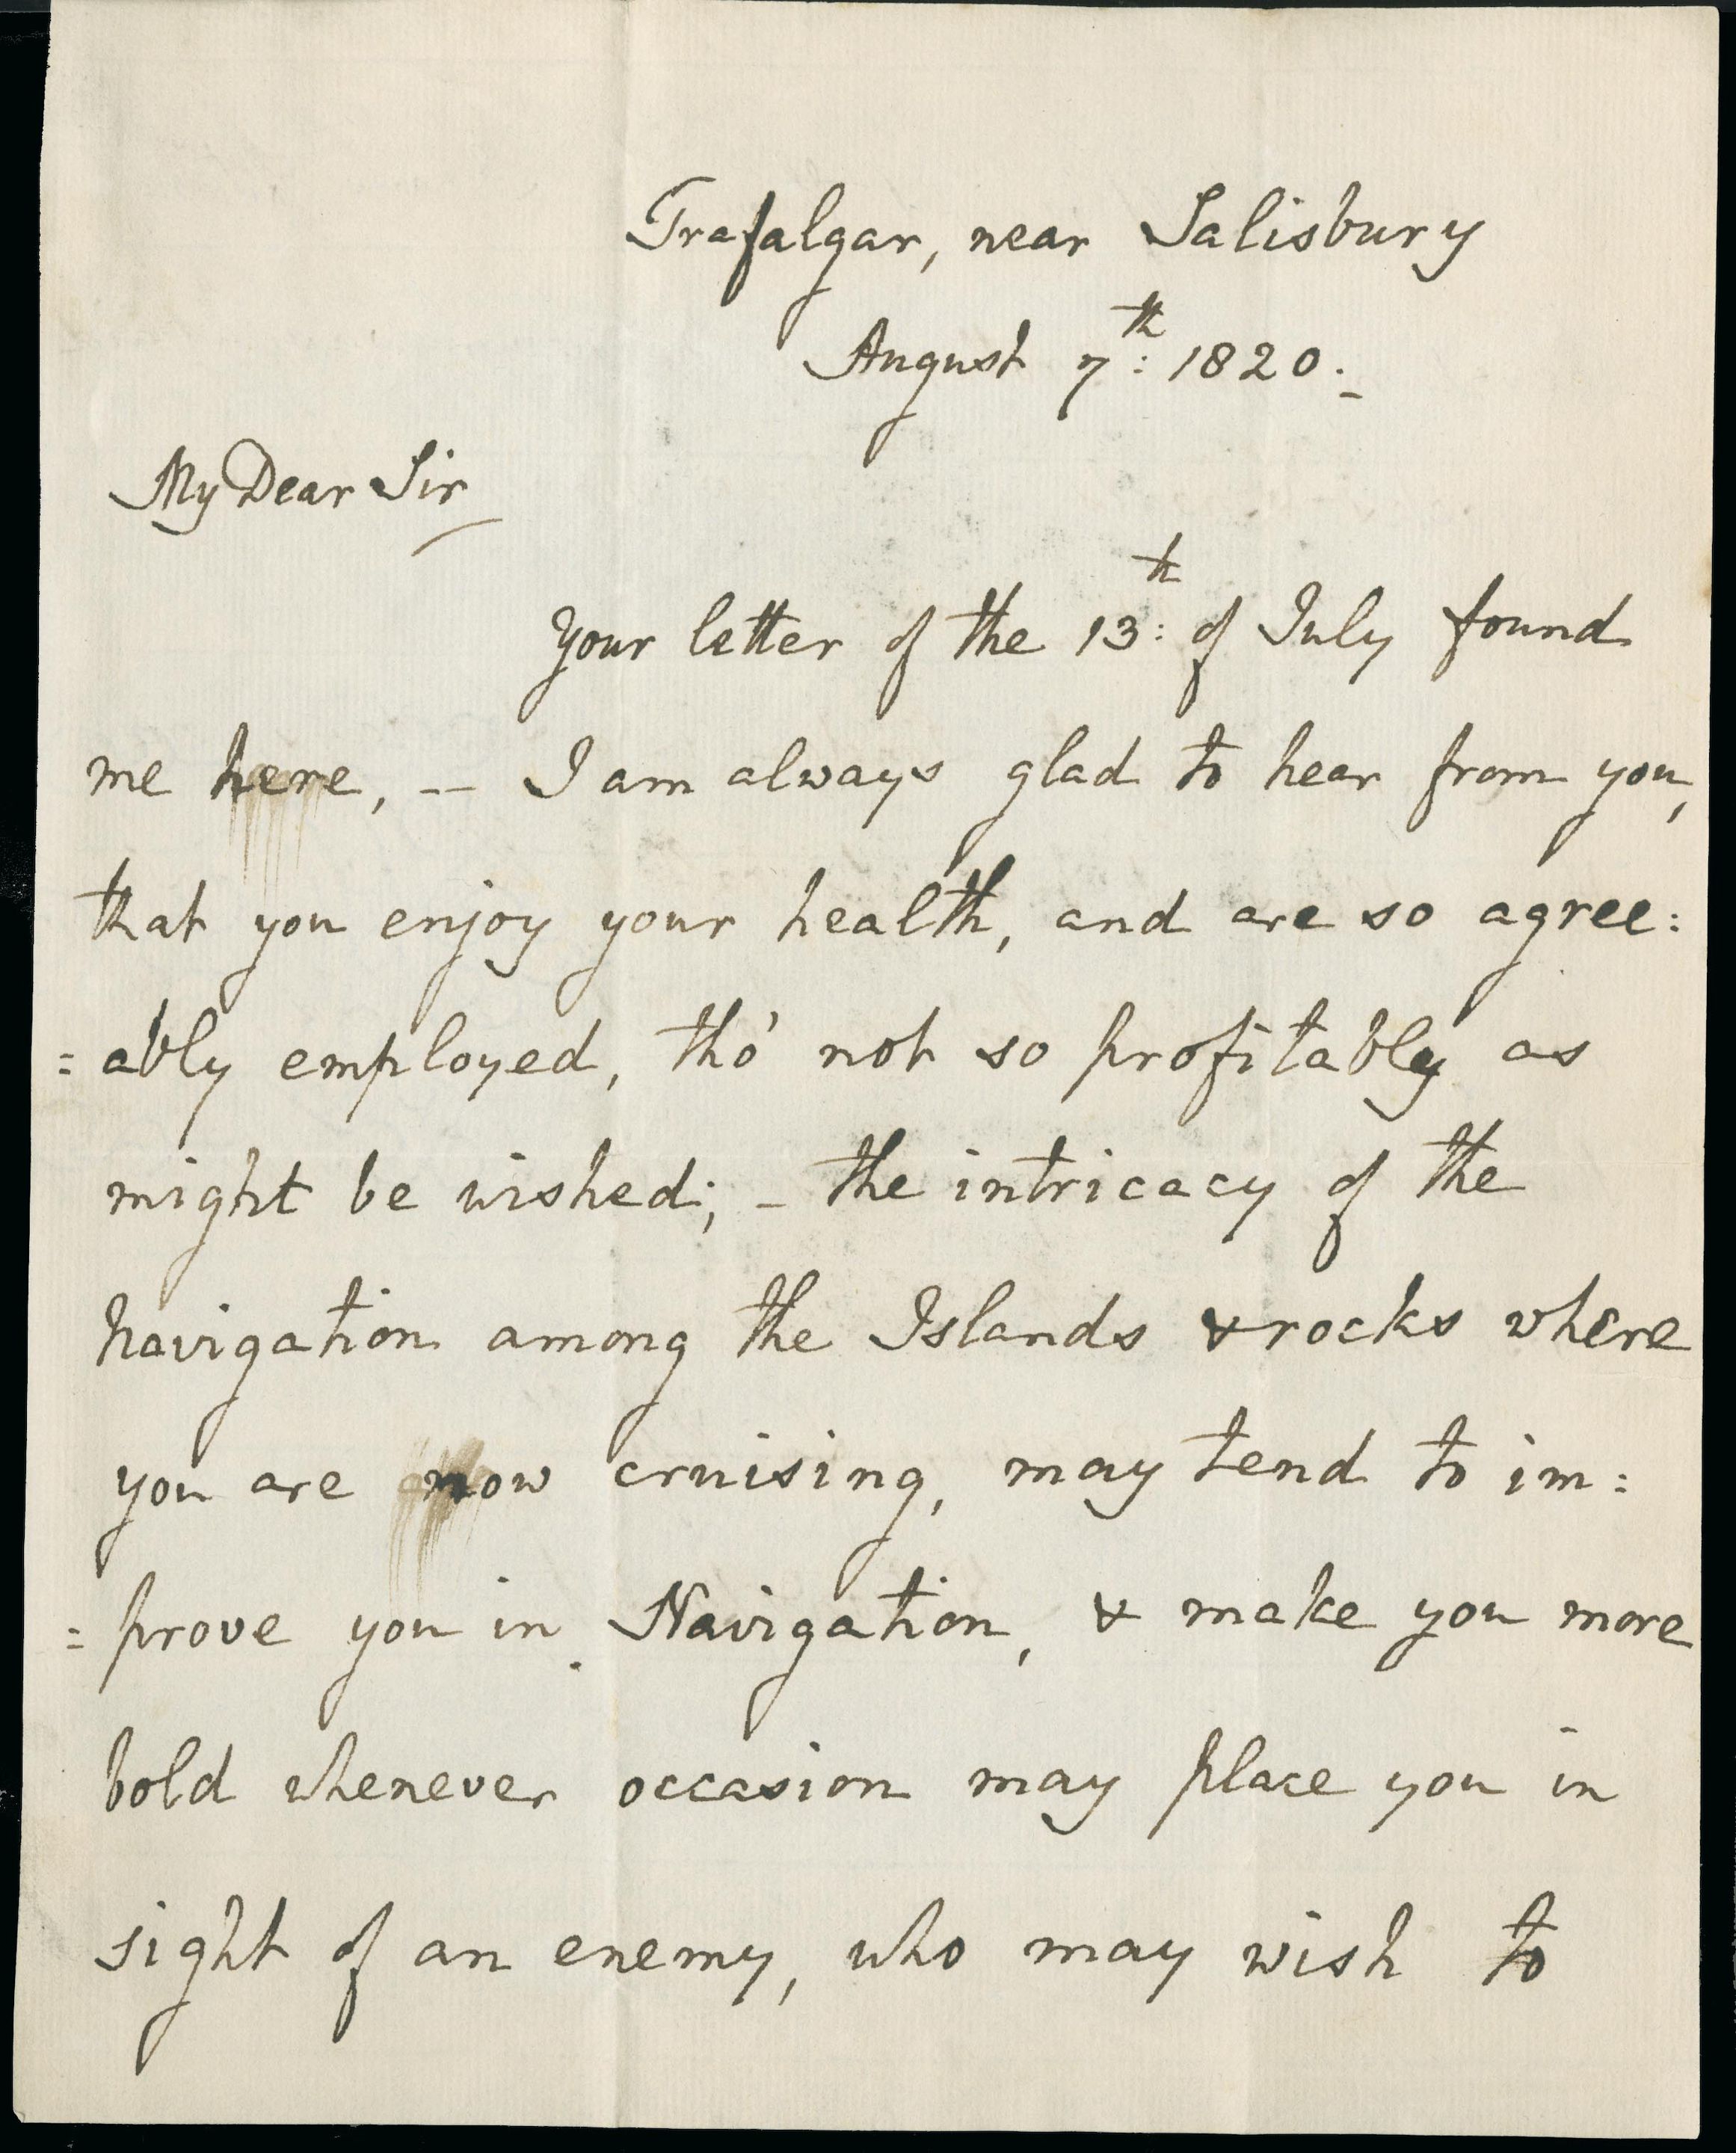 Trafalgar, near Salisbury
August 7th: 1820.
My Dear Sir
Your letter of the 13th: of July found
me here, -- I am always glad to hear from you,
that you enjoy your health, and are so agree:
=ably employed, tho' not so profitably as
might be wished; - the intricacy of the
navigation among the Islands & rocks where
you are now cruising, may tend to im:
=prove you in Navigation, & make you more
bold whenever occasion may place you in
sight of an enemy, who may wish to